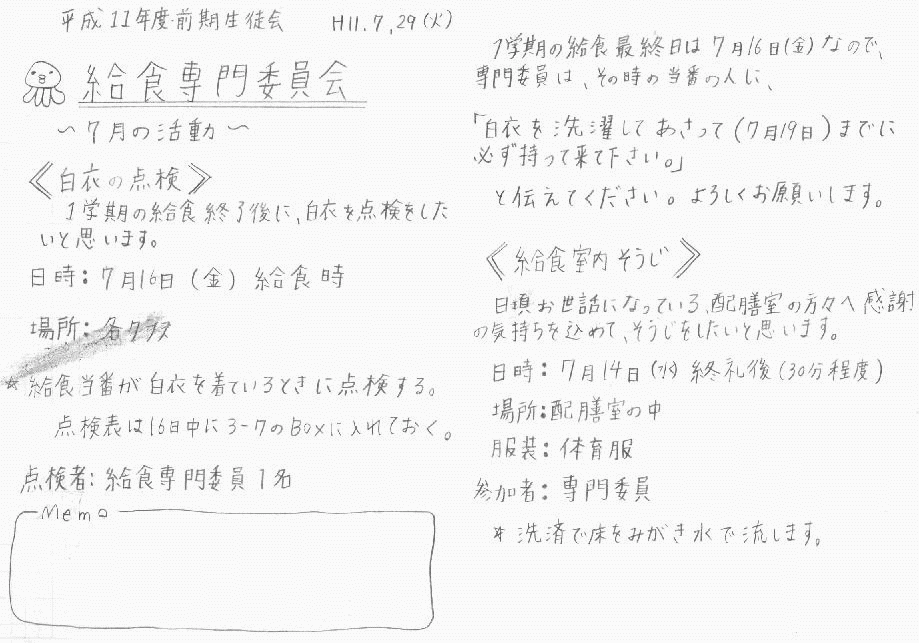 平成11年度前期生徒会 H11.7,29(火)
給食専門委員会
〜7月の活動〜
《白衣の点検》
1学期の給食終了後に、白衣を点検をした
いと思います。
日時:7月16日(金)給食時
場所:各クラス
*給食当番が白衣を着ているときに点検する。
点検表は16日中に3-7のBoxに入れておく。
点検者:給食専門委員1名
Memo
1学期の給食最終日は7月16日(金)なので、
専門委員は、その時の当番の人に、
「白衣を洗濯してあさって(7月19日)までに
必ず持って来て下さい。」
と伝えてください。よろしくお願いします。
《給食室内そうじ》
日頃お世話になっている、配膳室の方々へ感謝
の気持ちを込めて、そうじをしたいと思います。
日時:7月14日(水)終礼後(30分程度)
場所:配膳室の中
服装:体育服
参加者:専門委員
*洗済で床をみがき水で流します。